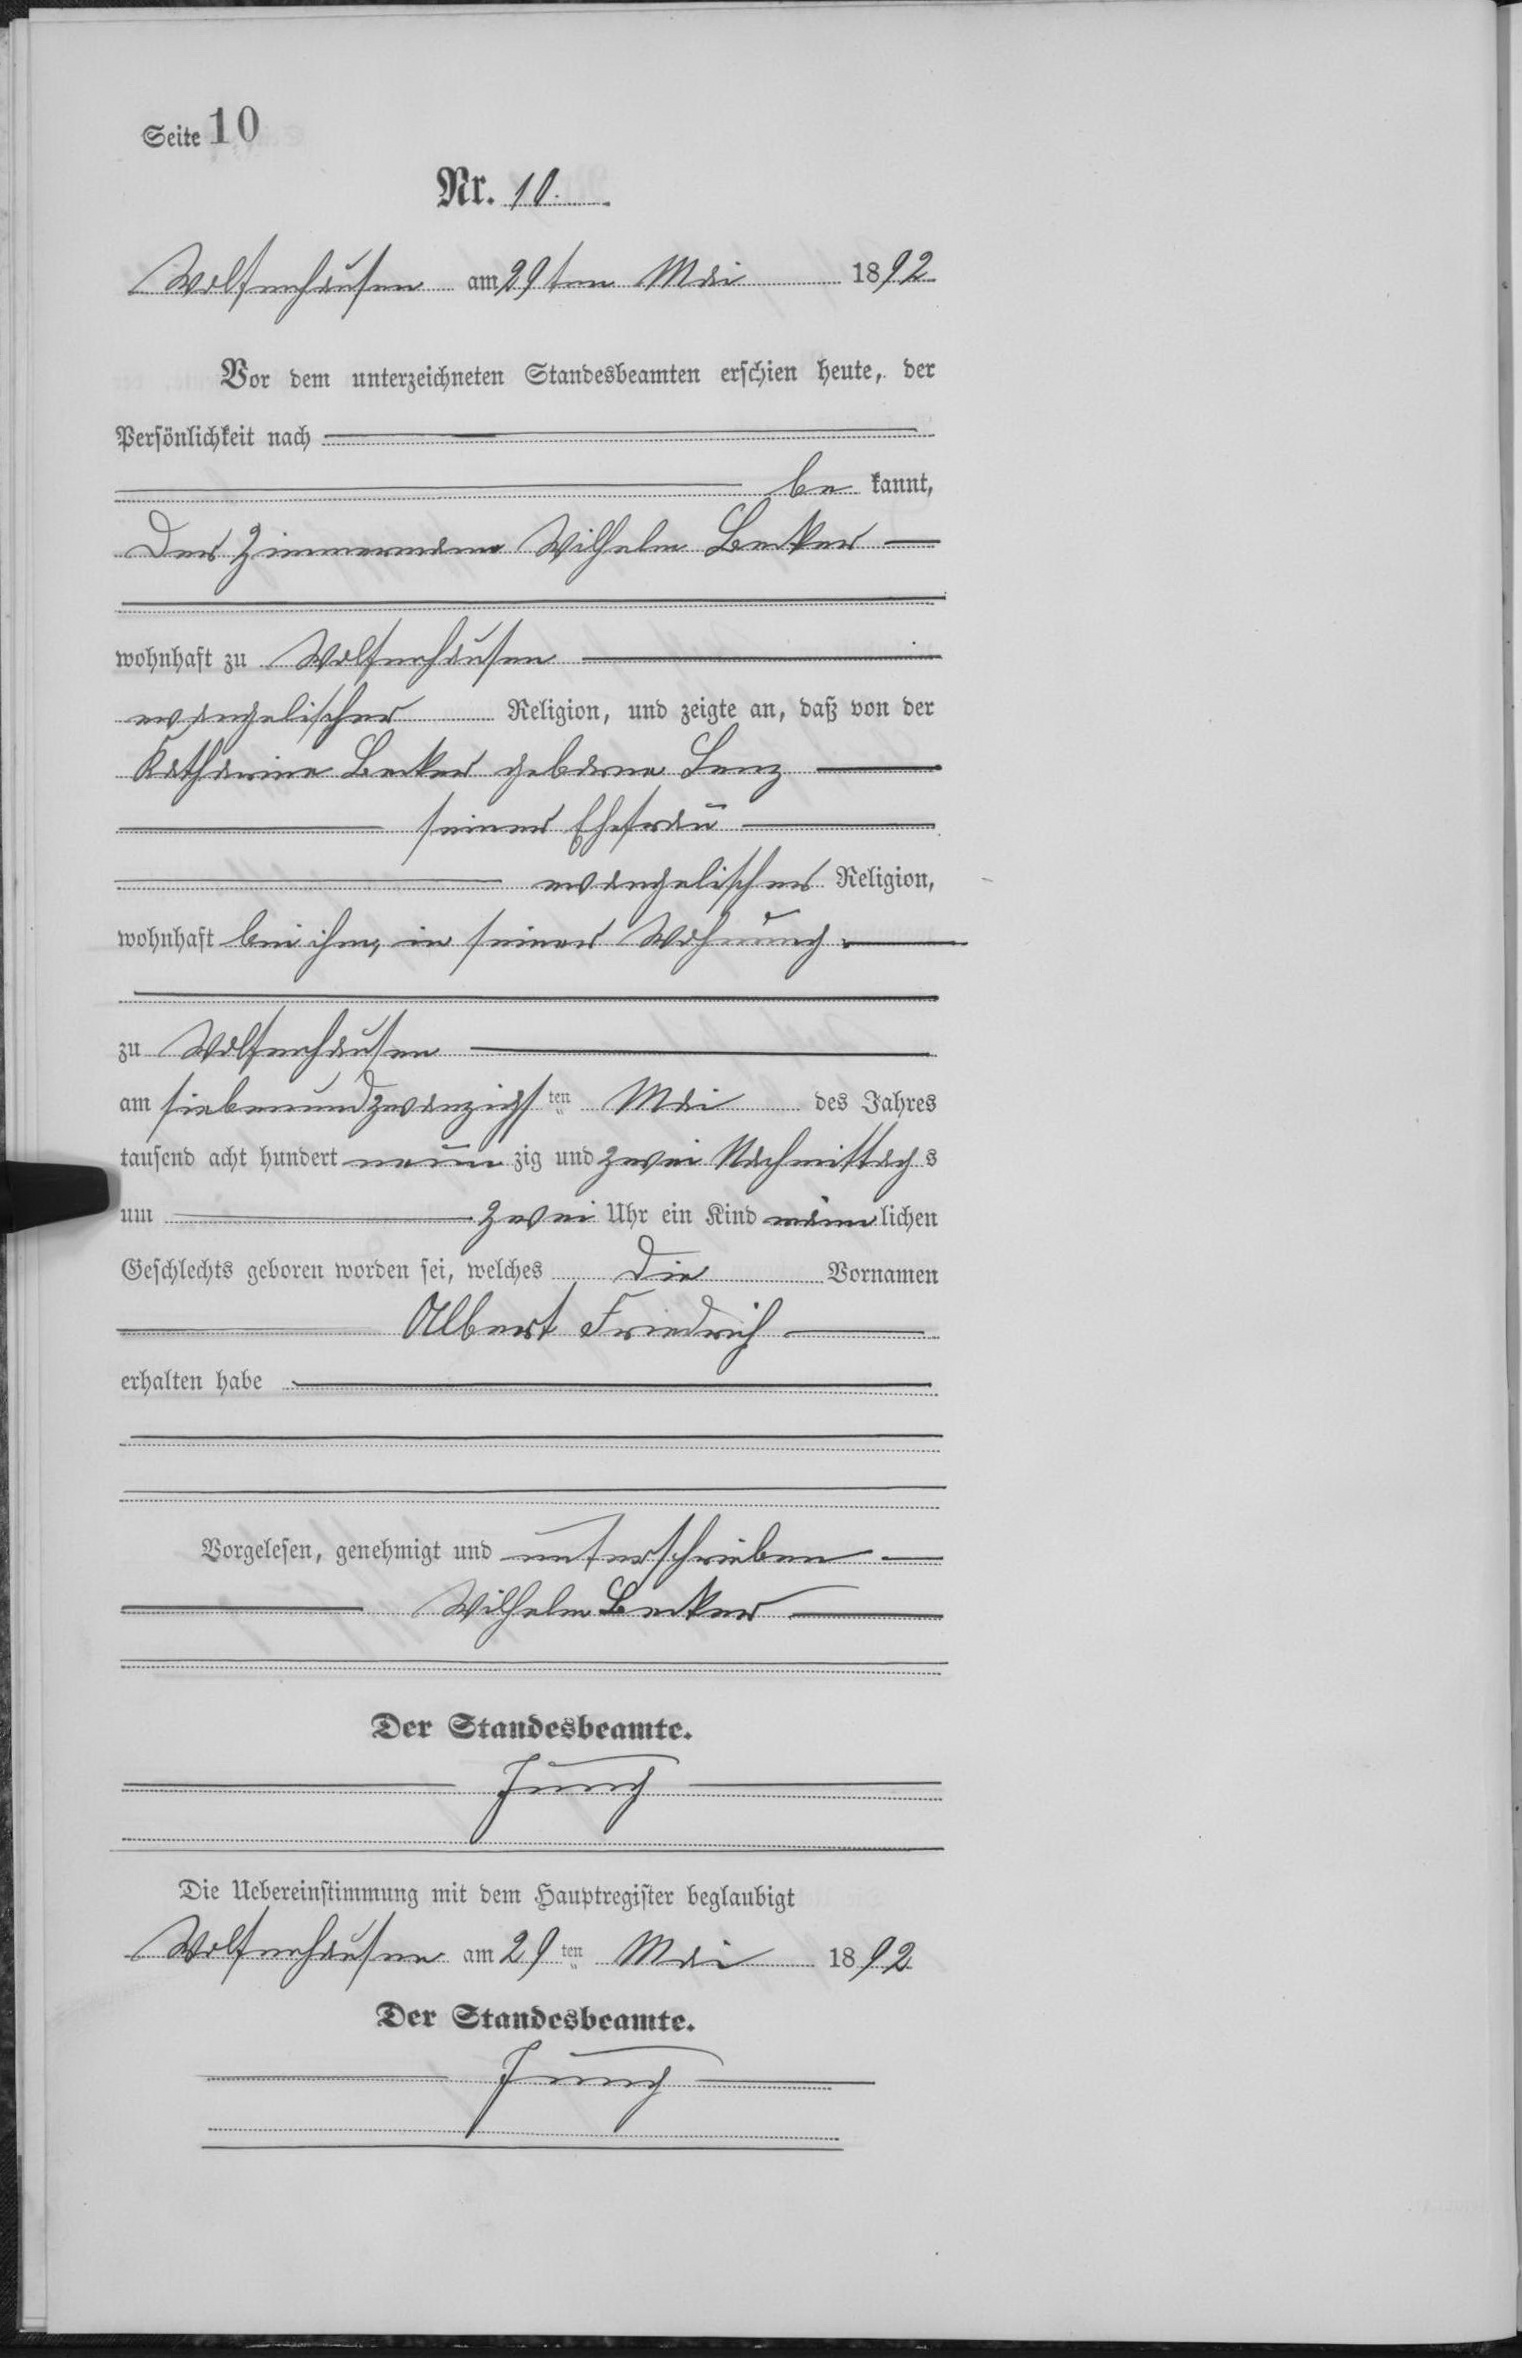 Seite 10
Nr. 10.
Wolfenhausen am 29ten Mai 1892
Vor dem unterzeichneten Standesbeamten erschien heute, der
Persönlichkeit nach
be kannt,
Der Zimmermann Wilhelm Becker
wohnhaft zu Wolfenhausen
evangelischer Religion, und zeigte an, daß von der
Katharine Becker geborne Lenz
seiner Ehefrau
evangelischer Religion,
wohnhaft bei ihm, in seiner Wohnung
zu Wolfenhausen
am siebenundzwanzigsten Mai des Jahres
tausend acht hundert neunzig und zwei Nachmittags
um zwei Uhr ein Kind männlichen
Geschlechts geboren worden sei, welches die Vornamen
Albert Friedrich
erhalten habe
Vorgelesen, genehmigt und unterschrieben
Wilhelm Becker
Der Standesbeamte.
Jung
Die Uebereinstimmung mit dem Hauptregister beglaubigt
Wolfenhausen am 29ten Mai 1892
Der Standesbeamte.
Jung